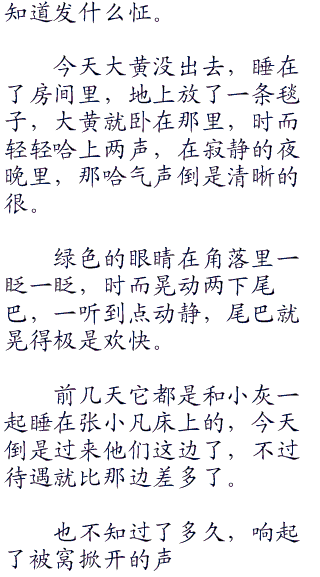 知道发什么怔。
今天大黄没出去，睡在
了房间里，地上放了一条毯
子，大黄就卧在那里，时而
轻轻哈上两声，在寂静的夜
晚里，那哈气声倒是清晰的
很。
绿色的眼睛在角落里一
眨一眨，时而晃动两下尾
巴，一听到点动静，尾巴就
晃得极是欢快。
前几天它都是和小灰一
起睡在张小凡床上的，今天
倒是过来他们这边了，不过
待遇就比那边差多了。
也不知过了多久，响起
了被窝掀开的声